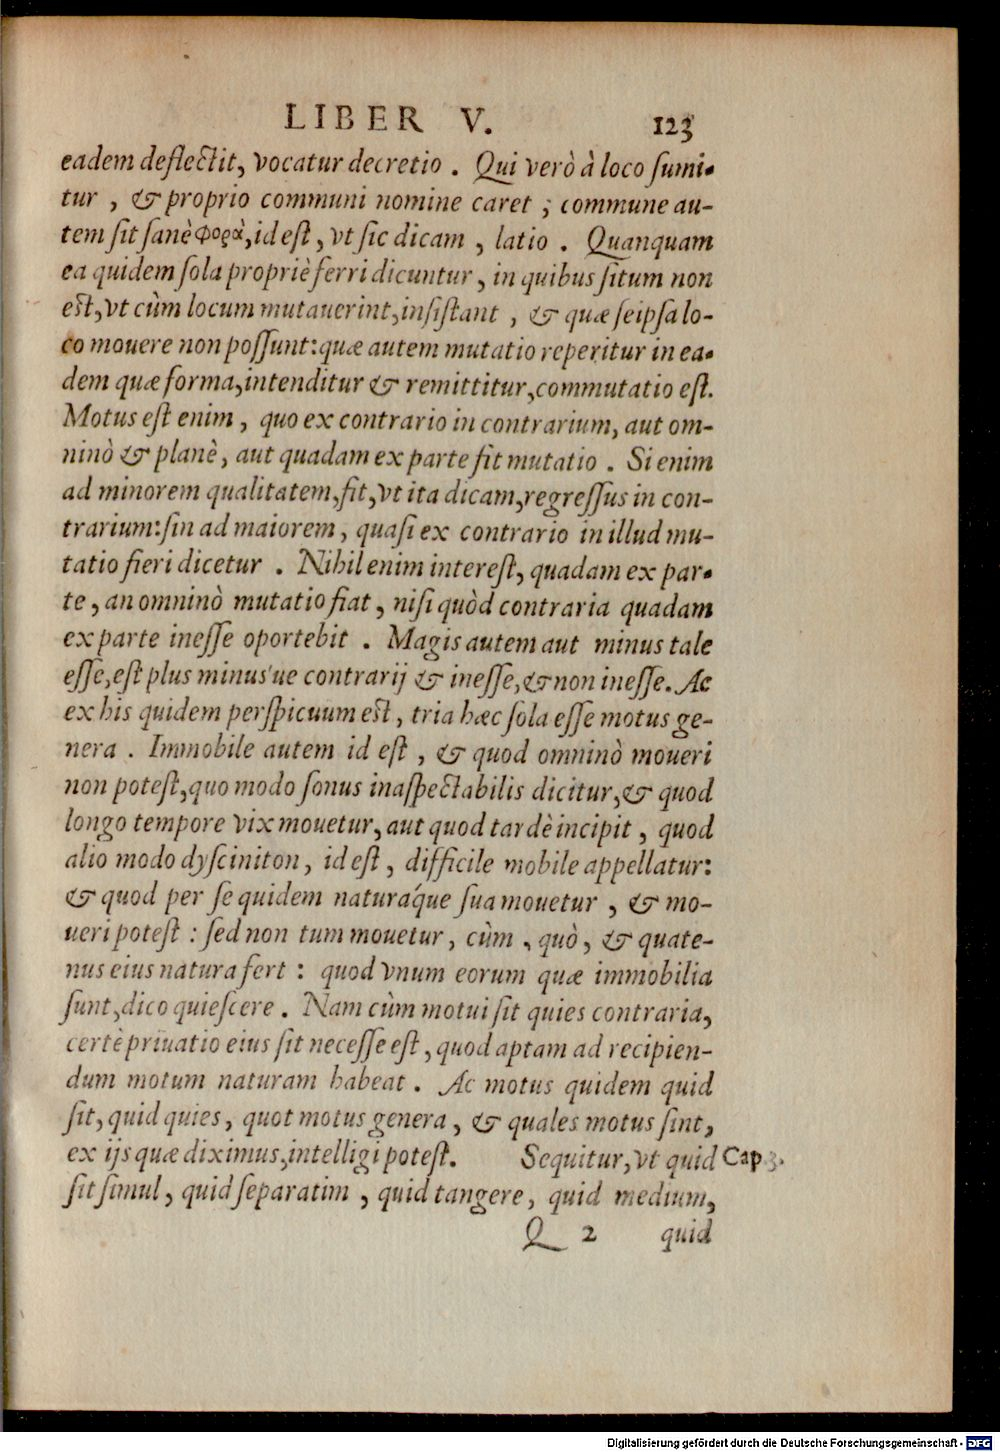 LIBER V. 123
eadem deflectit, vocatur decretio . Qui verò à loco sumi-
tur , & proprio communi nomine caret ; commune au-
tem sit sanè Φορὰ, id est , vt sic dicam , latio . Quanquam
ea quidem sola propriè ferri dicuntur , in quibus situm non
est, vt cùm locum mutauerint, insistant , & quæ seipsa lo-
co mouere non possunt: quæ autem mutatio reperitur in ea-
dem quæ forma, intenditur & remittitur, commutatio est.
Motus est enim , quo ex contrario in contrarium, aut om-
ninò & planè , aut quadam ex parte fit mutatio . Si enim
ad minorem qualitatem, fit, vt ita dicam, regressus in con-
trarium: sin ad maiorem , quasi ex contrario in illud mu-
tatio fieri dicetur . Nihil enim interest, quadam ex par-
te , an omninò mutatio fiat , nisi quòd contraria quadam
ex parte inesse oportebit . Magis autem aut minus tale
esse, est plus minus'ue contrarij & inesse, & non inesse. Ac
ex his quidem perspicuum est , tria hæc sola esse motus ge-
nera . Immobile autem id est , & quod omninò moueri
non potest, quo modo sonus inaspectabilis dicitur, & quod
longo tempore vix mouetur, aut quod tardè incipit , quod
alio modo dysciniton , id est , difficile mobile appellatur:
& quod per se quidem naturáque sua mouetur , & mo-
ueri potest : sed non tum mouetur , cùm , quò , & quate-
nus eius natura fert : quod vnum eorum quæ immobilia
sunt, dico quiescere . Nam cùm motui sit quies contraria,
certè priuatio eius sit necesse est , quod aptam ad recipien-
dum motum naturam habeat . Ac motus quidem quid
sit, quid quies , quot motus genera , & quales motus sint,
ex ijs quæ diximus, intelligi potest. Sequitur, vt quid Cap 3.
sit simul , quid separatim , quid tangere , quid medium,
Q 2 quid
Digitalisierung gefördert durch die Deutsche Forschungsgemeinschaft - DFG